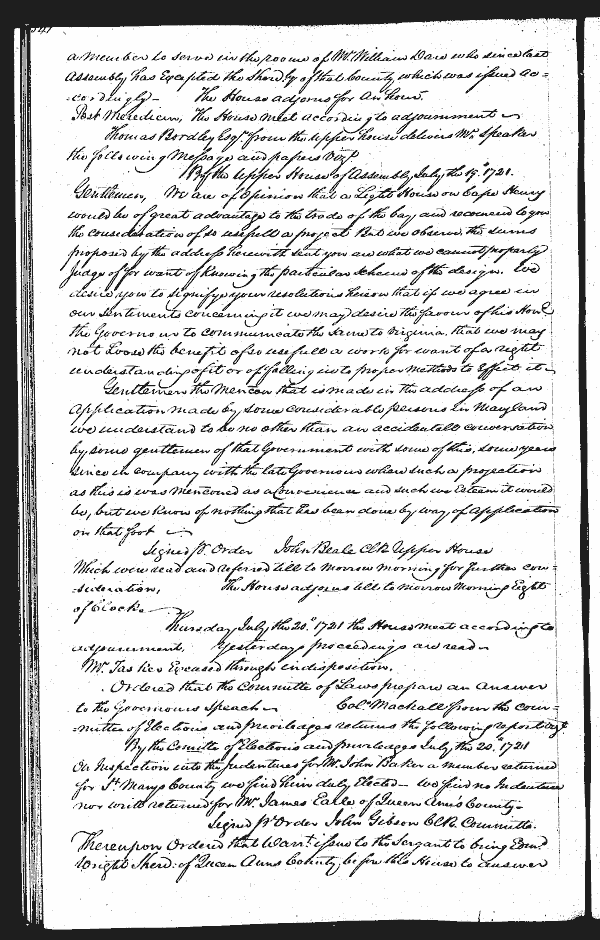 a member to serve in the roome of Mr. William Dare who since last
Assembly has Excepted the Sherifty of that County, which was issued ac=
=cordingly - The House adjorns for An hour.
Post Meredien, The House meet according to adjournment
Thomas Bordley Esqr. from the upper house delivers Mr. Speaker
the following Message and papers Vizt.
By the upper House of Assembly July the 19th 1721.
Gentlemen, We are of Opinion that a Light House on Cape Henry
would be of great advantage to the trade of the bay, and recomend to you
the consideration of so usefull a project But we observe the sums
proposed by the address herewith sent you are what we cannot properly
Judge of for want of knowing the particular scheme of the design. We
desire you to signifye your resolutions hereon that if we agree in
our sentiments concerning it we may desire the favour of his Honr.
the Governour to communicate the same to Virginia, that we may
not Loose the benefit of so usefull a work for want of a right
understanding of it or of falling in to proper methods to Effect it
Gentlemen the Mencon that is made in the address of an
Application made by some considerable persons in Maryland
we understand to be no other than an accidentall conversation
by some gentlemen of that Government with some of this, some years
since in company with the late Governour where such a projection
as this is was menconed as a Convenience and such we Esteem it would
be, but we know of nothing that has been done by way of Application
on that foot
Signed pr. Order John Beale Clk Upper House
Which were read and referred till to morrow morning for further con=
=sideration, The House adjorns till to morrow Morning Eight
of Clock
Thursday July the 20th 1721 the House meet according to
adjournment, Yesterdays proceedings are read
Mr. Tasker Excused through indisposition.
Ordered that the Committe of Laws prepare an Answer
to the Governours Speach Colo. Mackall from the com=
=mittee of Elections and priviledges returns the following report Vizt.
By the Comitte of Elections and priviledges July the 20th 1721
On Inspection into the Indentures for Mr. John Baker a member returned
for St. Marys County we find him duly Elected - we find no Indenture
nor writt returned for Mr. James Earle of Queen Ann's County.
Signed pr. Order John Gibson Clk Committe.
Thereupon Ordered that Warrt. issue to the Sergant to bring Edwd.
Wright Sherr. of Queen Anns County before this House to answer